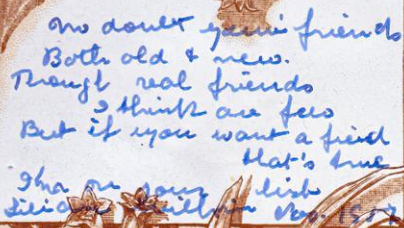 No doubt your friends
Both old & new.
Though real friends
I think are few
But if you want a friend
that's true
I'm on your list
Nov. 1957